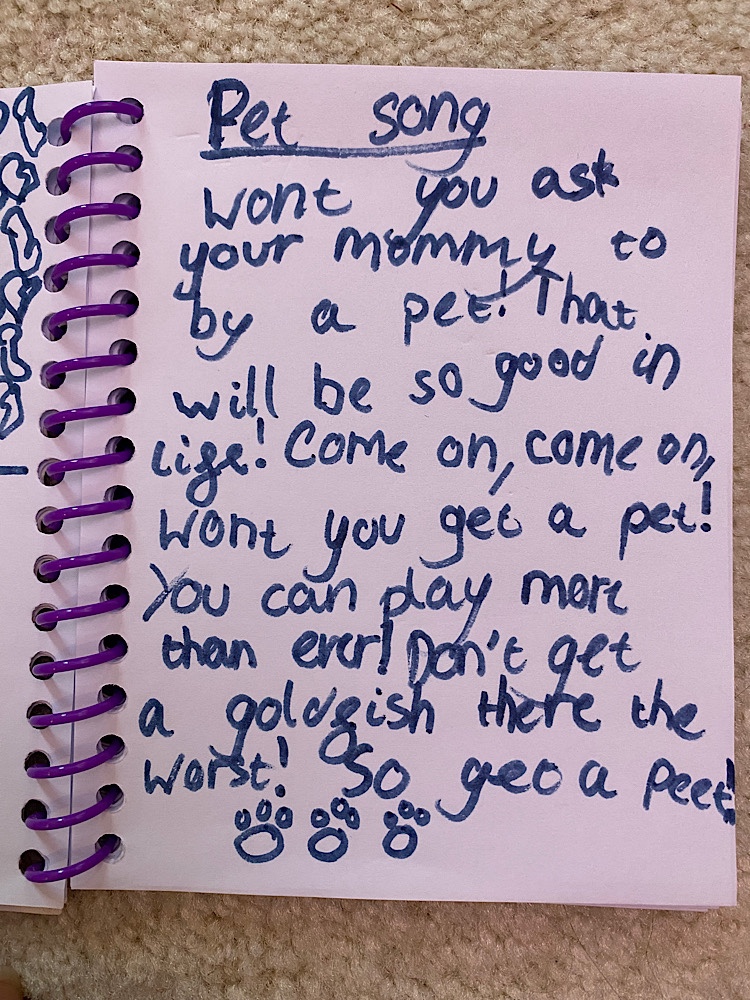 Pet song
wont you ask
your mommy to
by a pet! That
will be so good in
life! Come on, come on,
wont you get a pet!
You can play more
than ever! Don't get
a goldfish there the
worst! So get a peet!